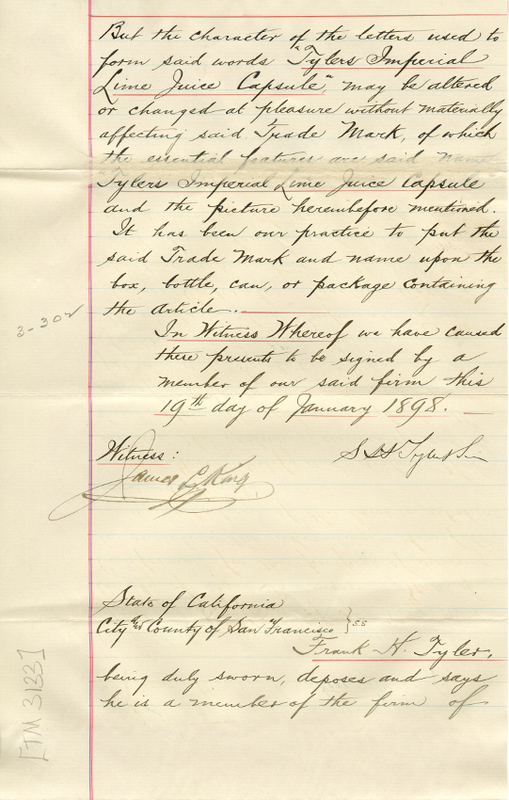 But the character of the letters used to
form said words "Tylers Imperial
Lime Juice Capsule", may be altered
or changed at pleasure without materially
affecting said Trade Mark, of which
the essential features are said name
"Tylers Imperial Lime Juice Capsule"
and the picture hereinbefore mentioned.
It has been our practice to put the
said Trade Mark and name upon the
box, bottle, can, or package containing
the article.
3-302
In Witness Whereof we have caused
these presents to be signed by a
member of our said firm this
19th day of January 1898.
Witness:
S H Tyler & Son
James L King
State of California
City and County of San Francisco } ss
Frank H. Tyler,
being duly sworn, deposes and says
he is a member of the firm of
[TM 3133]